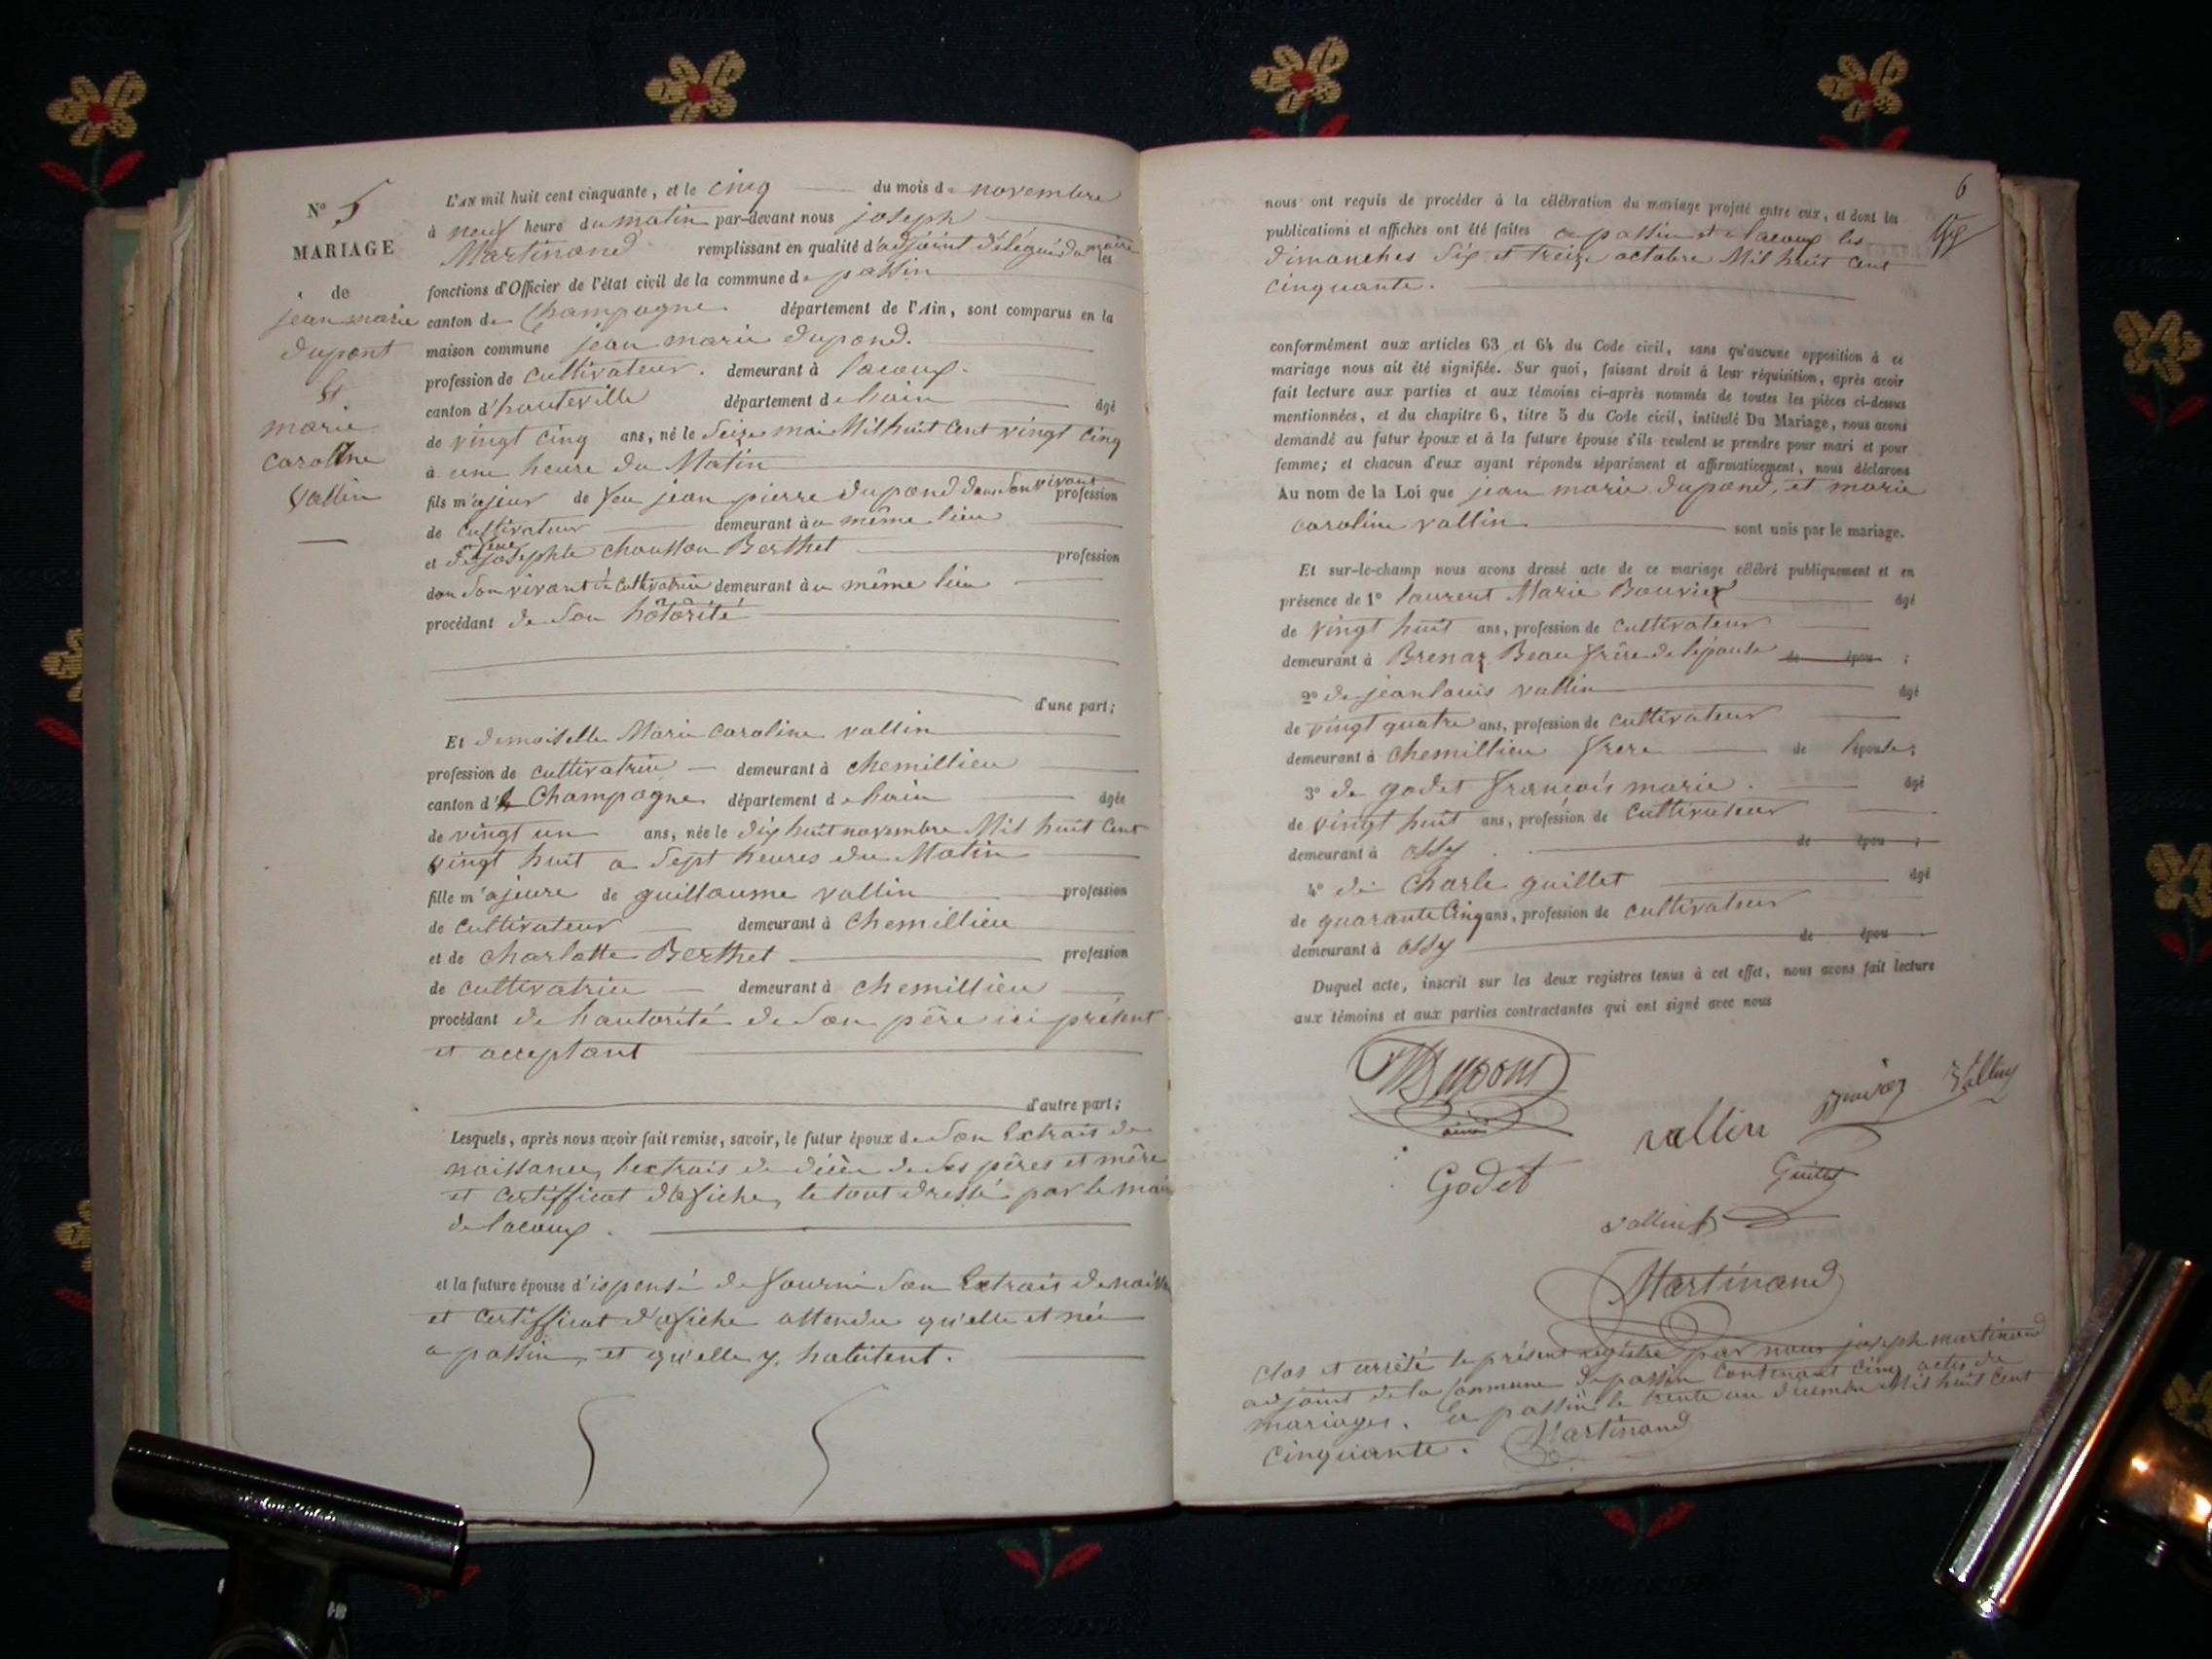 N° 5
MARIAGE
de
jean marie
dupont
Et
marie
caroline
vallin
L'AN mil huit cent cinquante, et le cinq du mois de novembre
à neuf heure du matin par-devant nous joseph
Martinand remplissant en qualité d'adjoint délégué du maire les
fonctions d'Officier de l'état civil de la commune de passin
canton de Champagne département de l'Ain, sont comparus en la
maison commune jean marie dupond.
profession de cultivateur. demeurant à lacoux.
canton d'hauteville département de lain âgé
de vingt cinq ans, né le seize mai Mil huit Cent vingt cinq
à une heure du Matin
fils majeur de feu jean pierre dupond dans son vivant profession
de cultivateur demeurant à u même lieu
et de feue josephte chousson Berthet profession
dan son vivant de cultivatrice demeurant à u même lieu
procédant de son hotorité
d'une part;
Et demoiselle Marie caroline vallin
profession de cultivatrice demeurant à chemillieu
canton d Champagne département de lain âgée
de vingt un ans, née le dix huit novembre Mil huit Cent
vingt huit a Sept heures du Matin
fille majeure de guillaume vallin profession
de cultivateur demeurant à chemillieu
et de charlotte Berthet profession
de cultivatrice demeurant à chemillieu
procédant de hautorité de son père ici présent
et acceptant
d'autre part;
Lesquels, après nous avoir fait remise, savoir, le futur époux de son Extrait de
naissance, lextrais de décè de ses pères et mère
et certifficat d'afiche, le tout dressé par le maire
de lacoux.
et la future épouse dispensé de fournir son Extrait de naiss
et certifficat d'afiche attendu qu'elle et née
a passin, et qu'elle y habitent.
6
nous ont requis de procéder à la célébration du mariage projeté entre eux, et dont les
publications et affiches ont été faites a passin et a lacoux les
dimanches Six et treize octobre Mil huit Cent
cinquante.
conformément aux articles 63 et 64 du Code civil, sans qu'aucune opposition à ce
mariage nous ait été signifiée. Sur quoi, faisant droit à leur réquisition, après avoir
fait lecture aux parties et aux témoins ci-après nommés de toutes les pièces ci-dessus
mentionnées, et du chapitre 6, titre 5 du Code civil, intitulé Du Mariage, nous avons
demandé au futur époux et à la future épouse s'ils veulent se prendre pour mari et pour
femme; et chacun d'eux ayant répondu séparément et affirmativement, nous déclarons
Au nom de la Loi que jean marie dupond, et marie
caroline vallin sont unis par le mariage.
Et sur-le-champ nous avons dressé acte de ce mariage célébré publiquement et en
présence de 1° laurent Marie Bouvier âgé
de vingt huit ans, profession de cultivateur
demeurant à Brenaz Beau frère de lépouse de épou ;
2° de jean louis vallin âgé
de vingt quatre ans, profession de cultivateur
demeurant à chemillieu frere de lépouse;
3° de godet françois marie. âgé
de vingt huit ans, profession de cultivateur
demeurant à ossy de épou ;
4° de charle guillet âgé
de quarante Cinq ans, profession de cultivateur
demeurant à ossy de épou
Duquel acte, inscrit sur les deux registres tenus à cet effet, nous avons fait lecture
aux témoins et aux parties contractantes qui ont signé avec nous
vallin
Godet
Guillet
vallin
Martinand
clos et arrêté le présent registre par nous joseph martinand
adjoint de la commune de passin contenant cinq actes de
mariages. a passin le trente un décembre Mil huit Cent
cinquante. Martinand